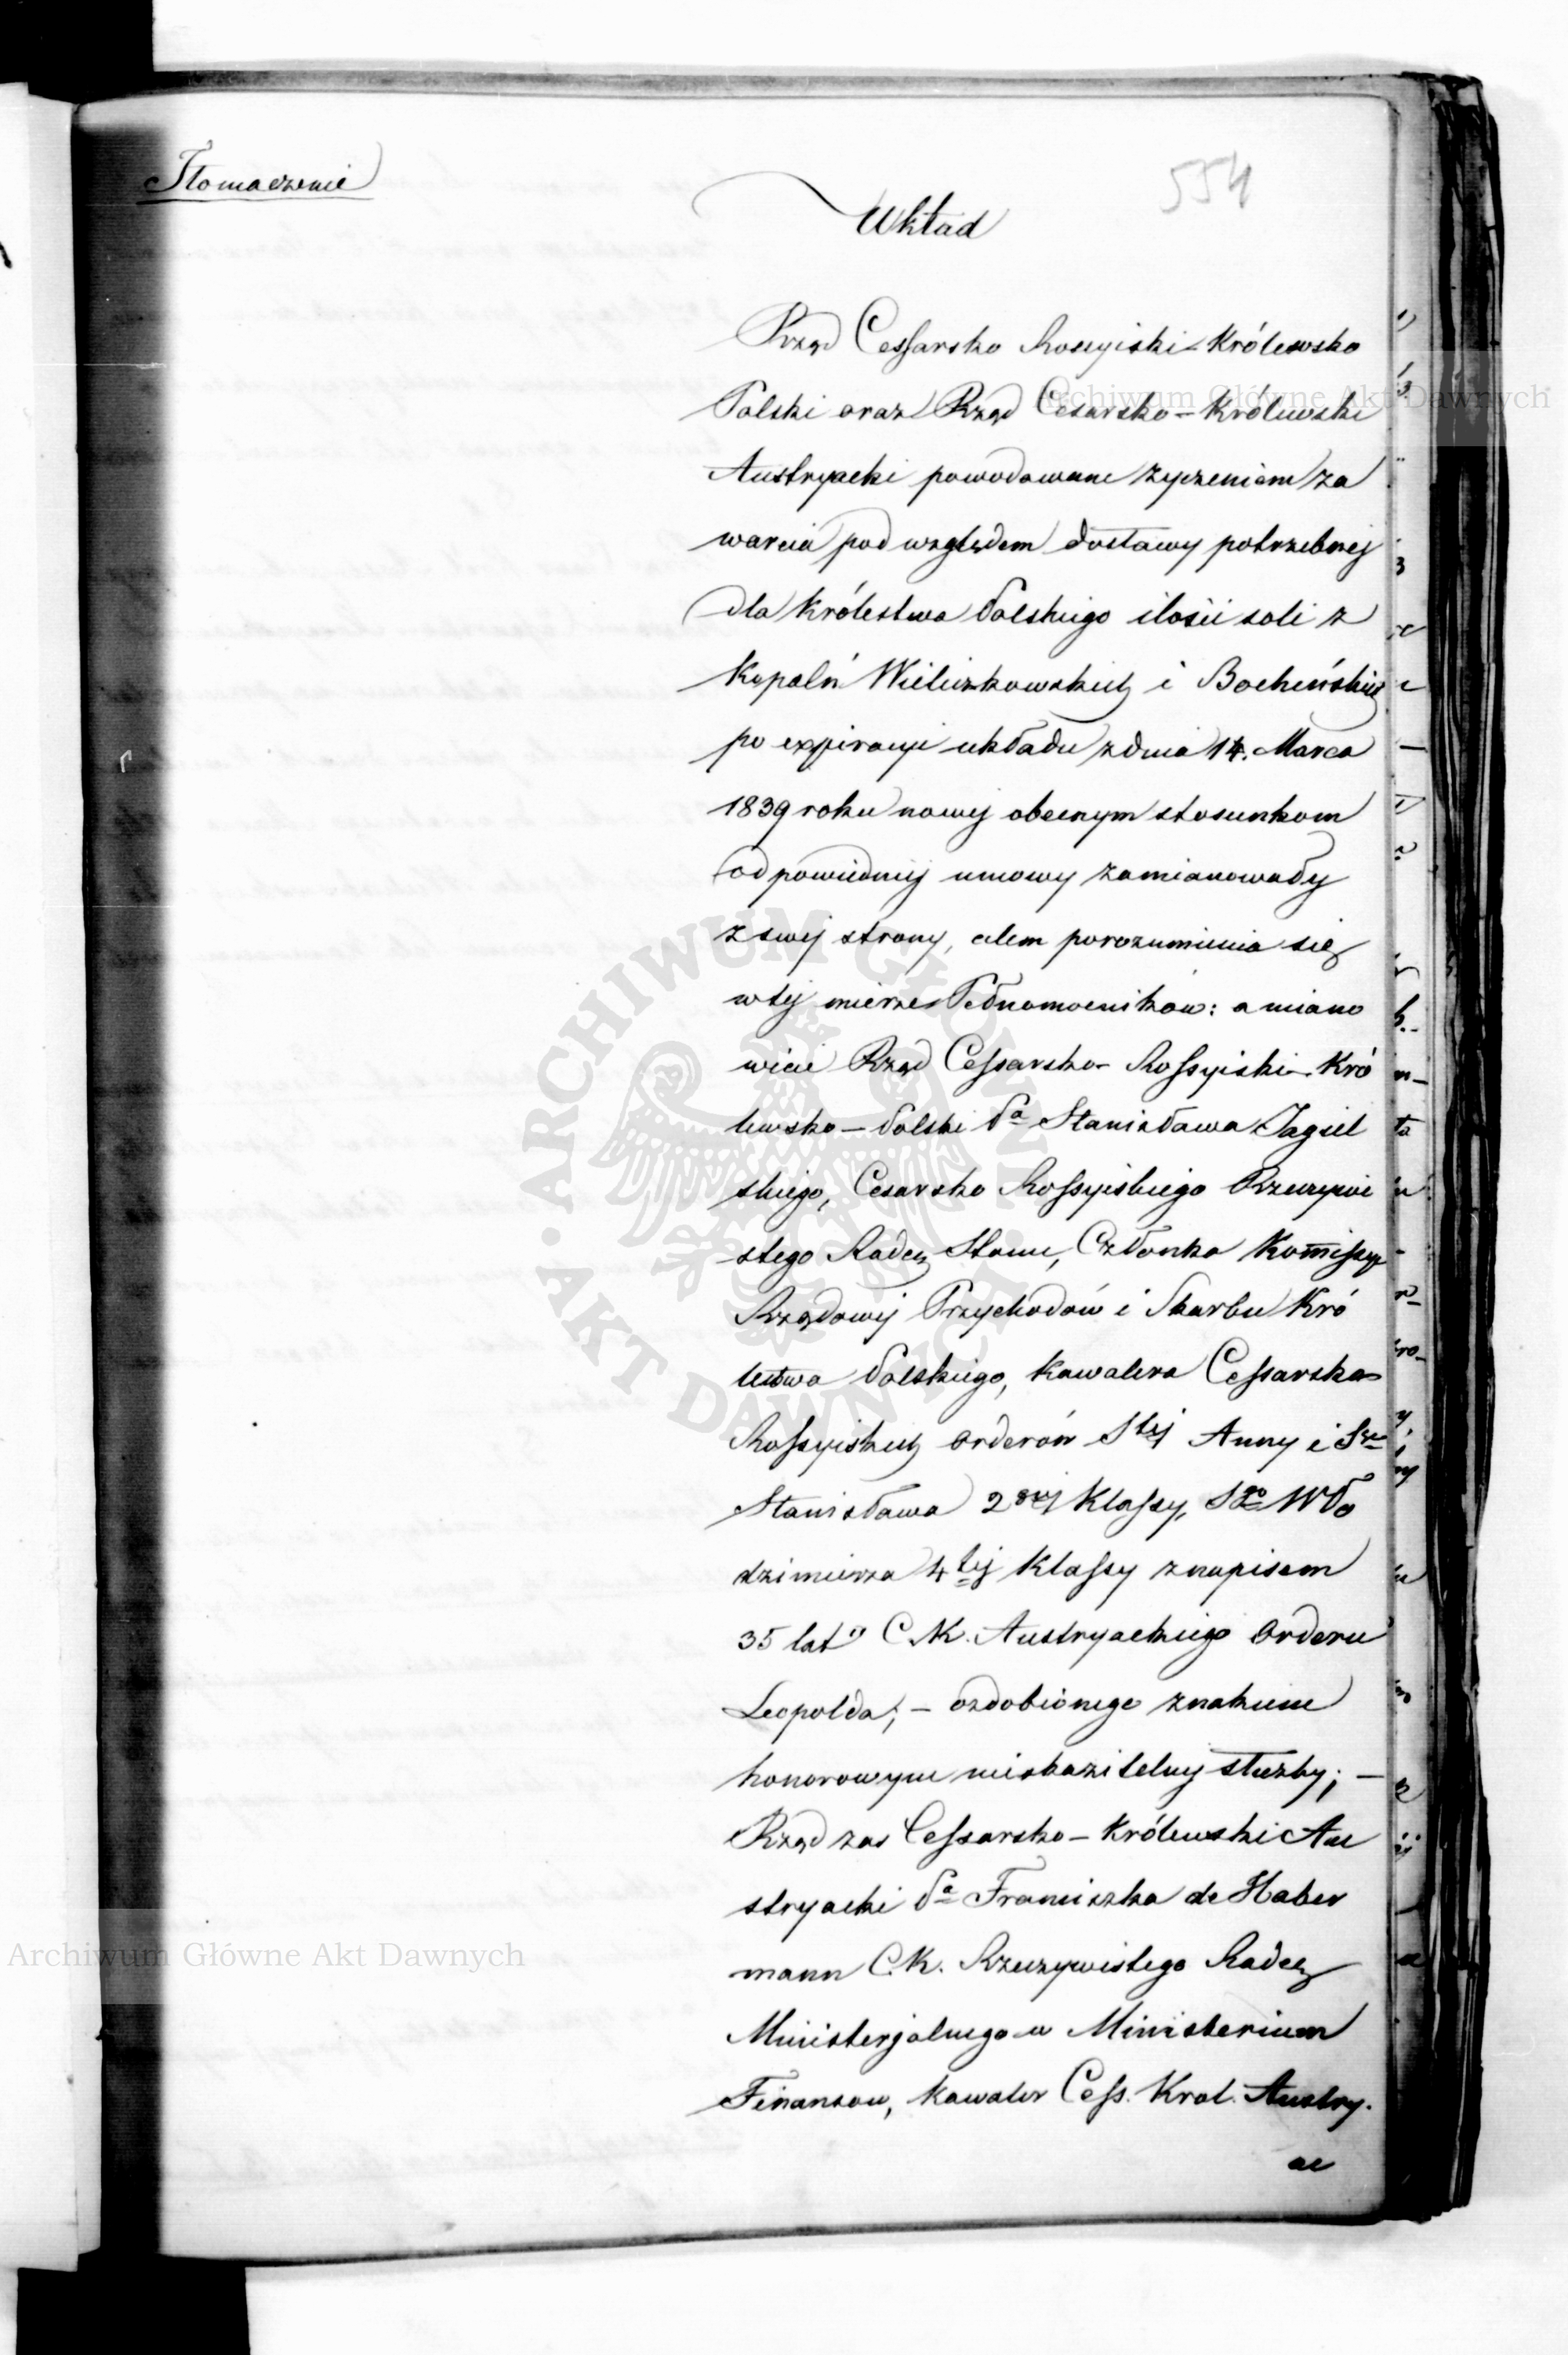 Tłomaczenie
554
Układ
Rząd Cessarsko Rossyiski-Królewsko
Polski oraz Rząd Cesarsko-Królewski
Austryacki powodowane życzeniem za
warcia pod względem dostawy potrzebnej
dla Królestwa Polskiego ilości soli z
Kopalń Wieliczkowskich i Bocheńskich
po expiracyi układu z dnia 14. Marca
1839 roku nowej obecnym stosunkom
odpowiedniej umowy zamianowały
z swej strony, celem porozumienia się
w tej mierze Pełnomocników: a miano
wicie Rząd Cessarsko-Rossyiski-Kró
lewsko-Polski Pa Stanisława Jagiel
skiego, Cesarsko Rossyiskiego Rzeczywi
stego Radcę Stanu, Członka Kommissyi
Rządowej Przychodów i Skarbu Kró
lestwa Polskiego, Kawalera Cessarsko-
Rossyiskich Orderów Stej Anny i Sgo
Stanisława 2giej Klassy, Sgo Wło
dzimierza 4tej Klassy z napisem
35 lat" C. K. Austryackiego Orderu
Leopolda; – ozdobionego znakiem
honorowym nieskazitelnej służby; –
Rząd zas Cessarsko-Królewski Au
stryacki Pa Franciszka de Haber
mann C. K. Rzeczywistego Radcę
Ministerjalnego w Ministerium
Finansow, Kawaler Cess. Krol. Austry.
ac
Archiwum Główne Akt Dawnych
Archiwum Główne Akt Dawnych
ARCHIWUM GŁÓWNE AKT DAWNYCH